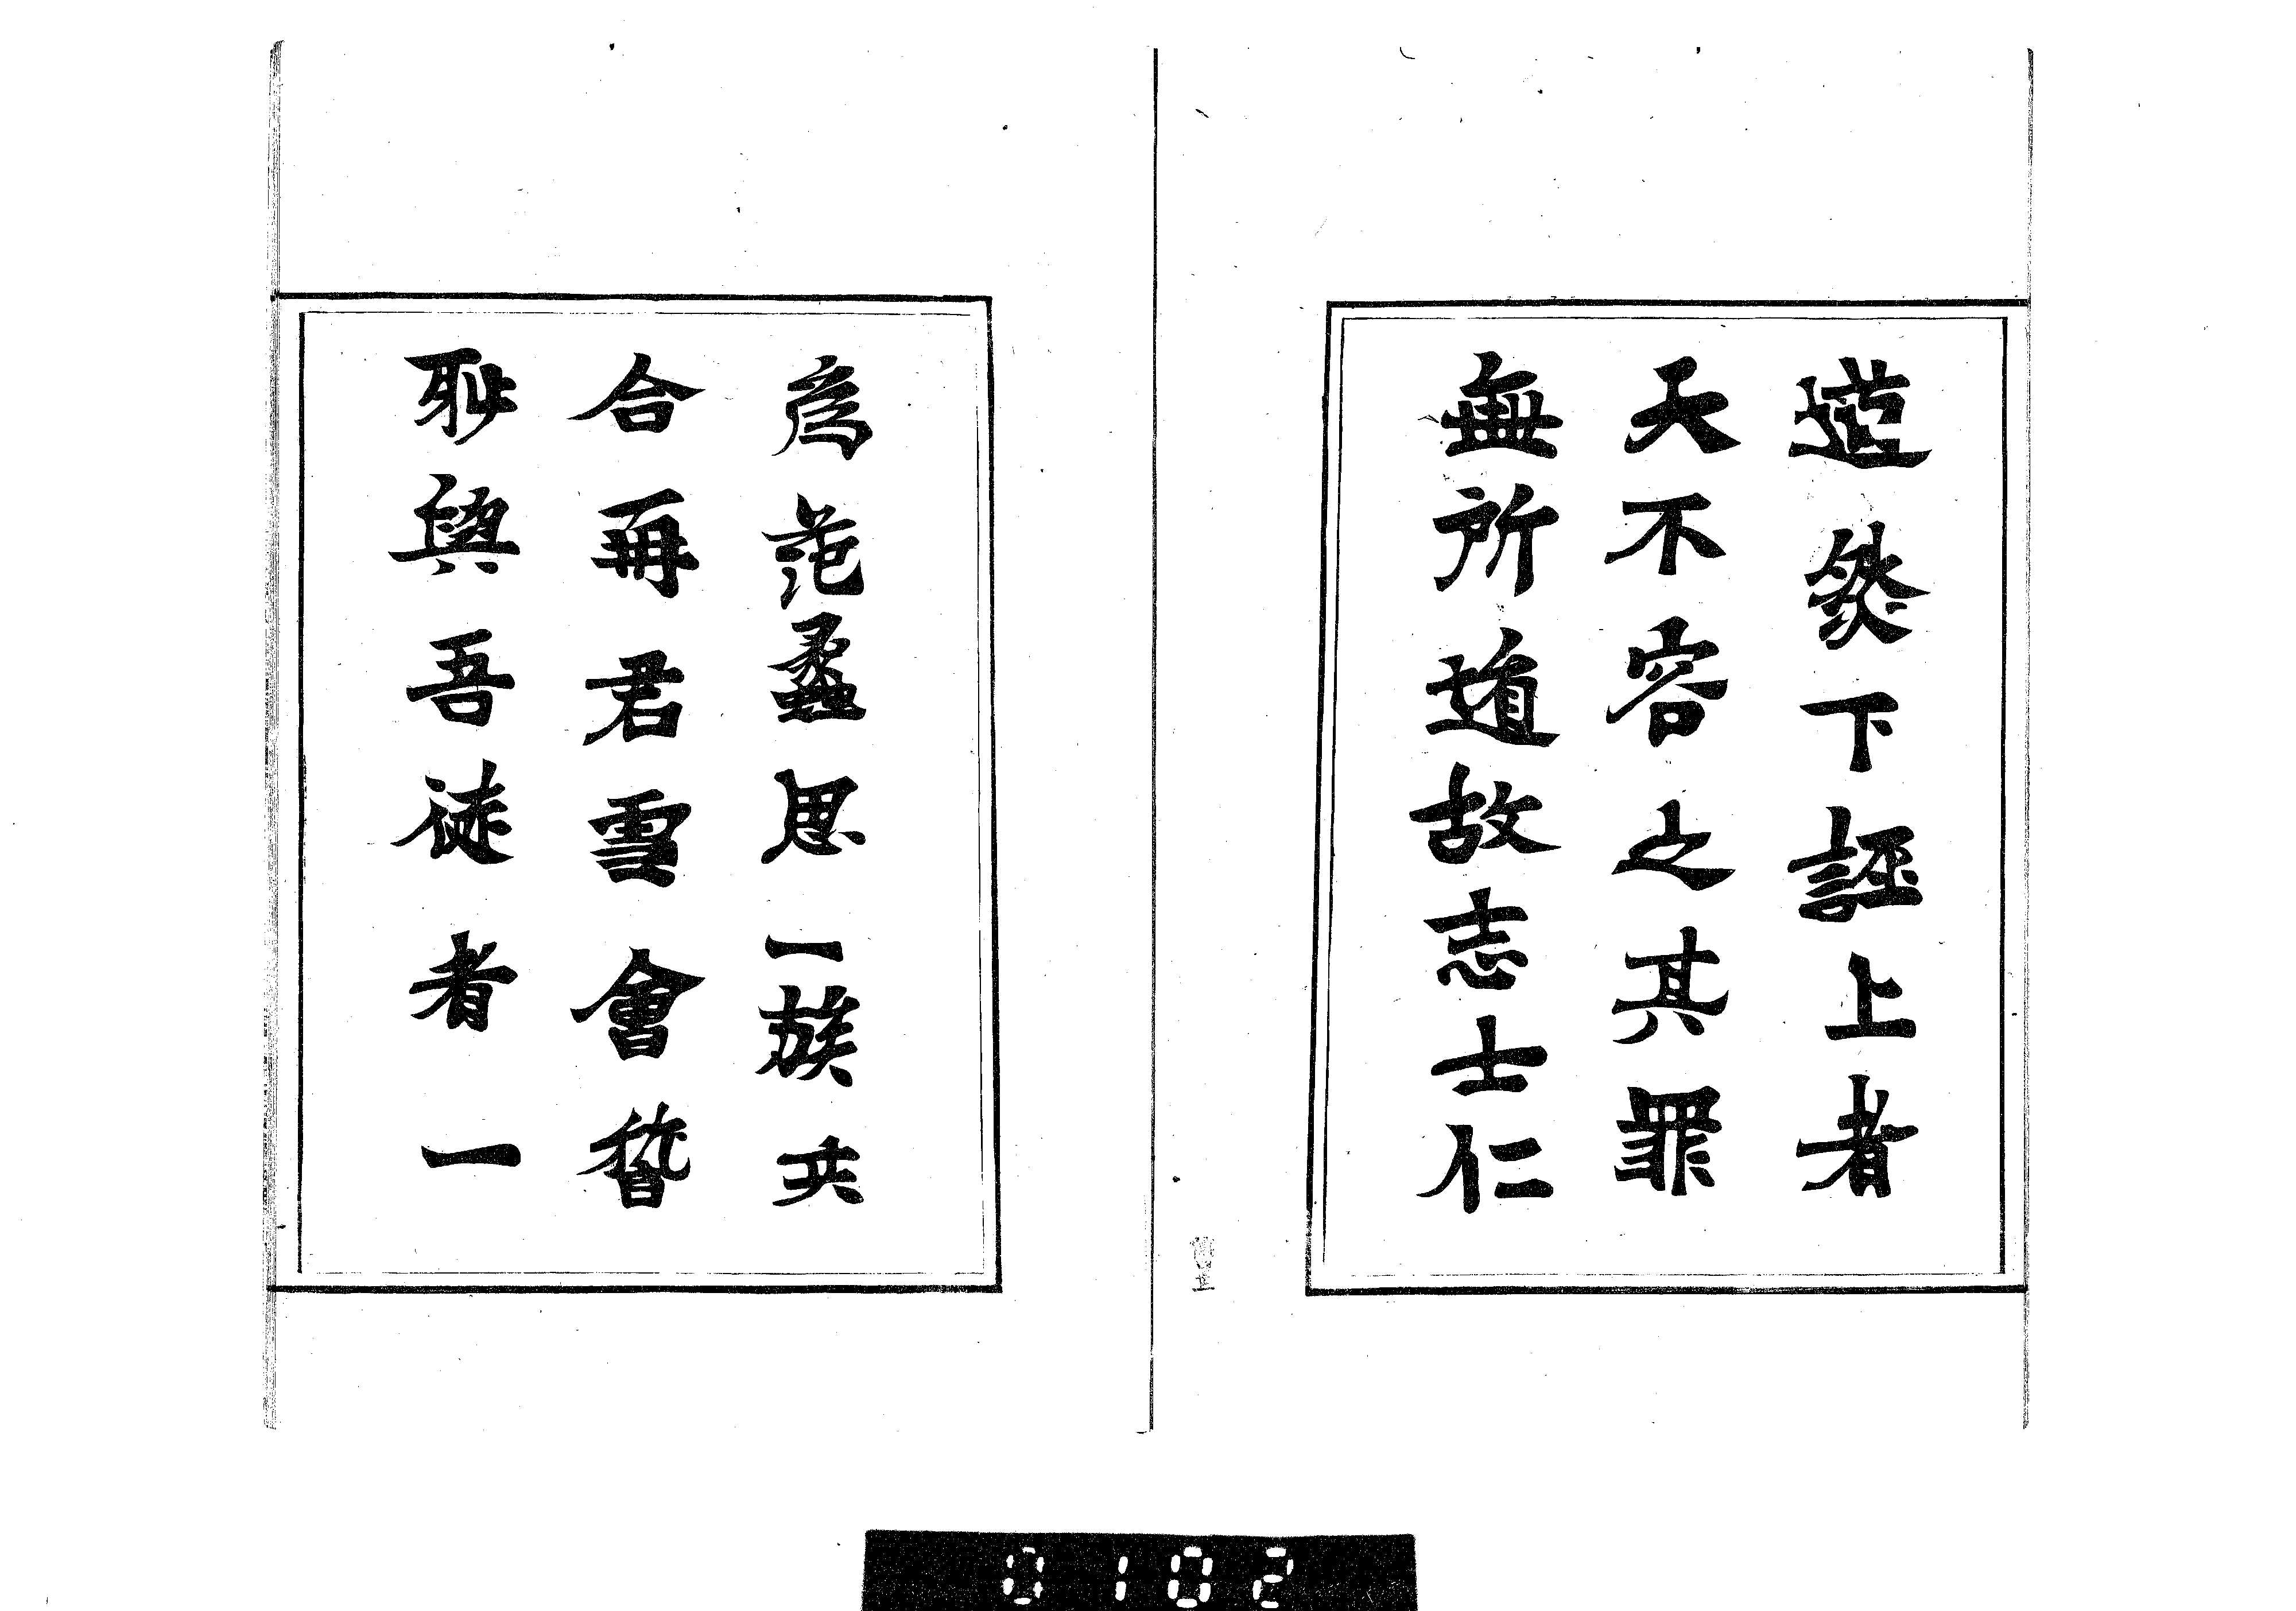 然下誣上者
天不容之其罪
無所遁故志士仁
為范蠡思一族共
合再君雪會稽
耻與吾徒者一
0102